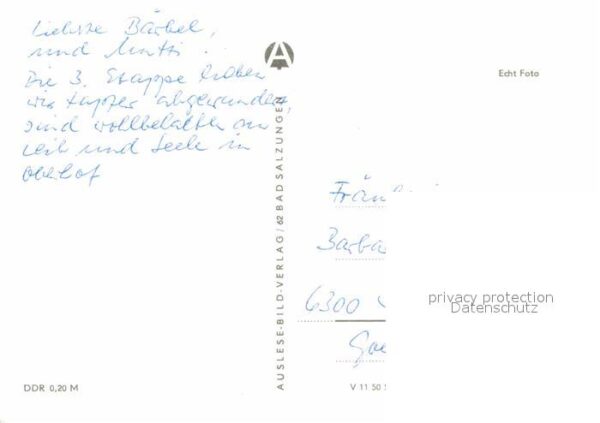 Liebste Bärbel,
und Mutti.
Die 3. Etappe haben
wir tapfer abgewandert,
sind wohlbehalten an
Leib und Seele in
Oberhof
AUSLESE-BILD-VERLAG/62 BAD SALZUNGEN
Echt Foto
Barba
6300
privacy protection
Datenschutz
DDR 0,20 M
V 11 50